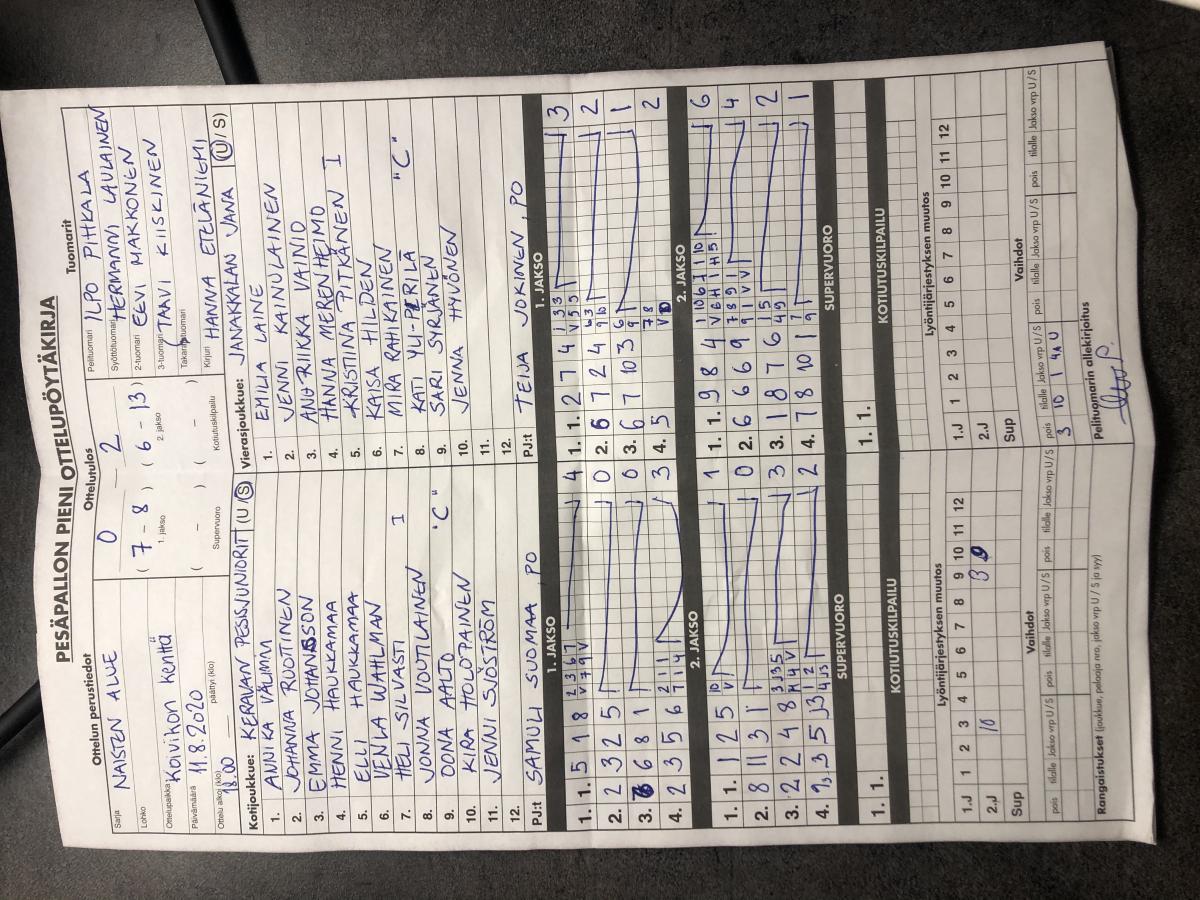 PESÄPALLON PIENI OTTELUPÖYTÄKIRJA
Ottelun perustiedot
Sarja NAISTEN ALUE
Lohko
Ottelupaikka Koivikon kenttä
Päivämäärä 11.8.2020
Ottelu alkoi (klo) 18.00 päättyi (klo)
Ottelutulos
0 - 2
( 7 - 8 ) ( 6 - 13 )
1. jakso 2. jakso
( - ) ( - )
Supervuoro Kotiutuskilpailu
Tuomarit
Pelituomari ILPO PIHKALA
Syöttötuomari HERMANNI LAULAINEN
2-tuomari EEVI MAKKONEN
3-tuomari TAAVI KIISKINEN
Takarajatuomari
Kirjuri HANNA ETELÄNIEMI
Kotijoukkue: KERAVAN PESISJUNIORIT (U/S)
1. ANNIKA VÄLIMM
2. JOHANNA RUOTINEN
3. EMMA JOHANSSON
4. HENNI HAUKKAMAA
5. ELI HAUKKAMAA
6. VENLA WAHLMAN
7. HELI SILVASTI I
8. JONNA VOUTILAINEN
9. OONA AALTO "C"
10. KIRA HOLOPAINEN
11. JENNI SJÖSTRÖM
12.
PJ:t SAMULI SUOMAA, PO
Vierasjoukkue: JANAKKALAN JANA (U/S)
1. EMILIA LAINE
2. JENNI KAINULAINEN
3. ANU-RIIKKA VAINIO
4. HANNA MERENHEIMO
5. KRISTIINA PITKÄNEN I
6. KAISA HILDEN
7. MIRA RAHIKAINEN "C"
8. KATI YLI-PERILÄ
9. SARI SYRJÄNEN
10. JENNA HYVÖNEN
11.
12.
PJ:t TEIJA JOKINEN, PO
1. JAKSO
1. 1. 5 1 8 4
2. 2 3 2 5 0
3. 6 8 1 0
4. 2 3 5 6 3
2. JAKSO
1. 1. 1 2 5 1
2. 8 11 3 1 0
3. 2 2 4 8 3
4. 3 5 2
SUPERVUORO
1. 1.
KOTIUTUSKILPAILU
1. 1.
1. JAKSO
1. 1. 2 7 4 3
2. 6 7 2 4 2
3. 6 7 10 3 1
4. 5 2
2. JAKSO
1. 1. 9 8 4 6
2. 6 6 6 9 4
3. 1 8 7 6 2
4. 7 8 10 1 1
SUPERVUORO
1. 1.
KOTIUTUSKILPAILU
1. 1.
Lyöntijärjestyksen muutos
1 2 3 4 5 6 7 8 9 10 11 12
1.J
2.J 10 3 9
Sup
Vaihdot
pois tilalle Jakso vrp U/S pois tilalle Jakso vrp U/S pois tilalle Jakso vrp U/S
Rangaistukset (joukkue, pelaaja nro, jakso vrp U/S ja syy)
Lyöntijärjestyksen muutos
1 2 3 4 5 6 7 8 9 10 11 12
1.J
2.J
Sup
Vaihdot
pois tilalle Jakso vrp U/S pois tilalle Jakso vrp U/S pois tilalle Jakso vrp U/S
3 10 1 4A U
Pelituomarin allekirjoitus